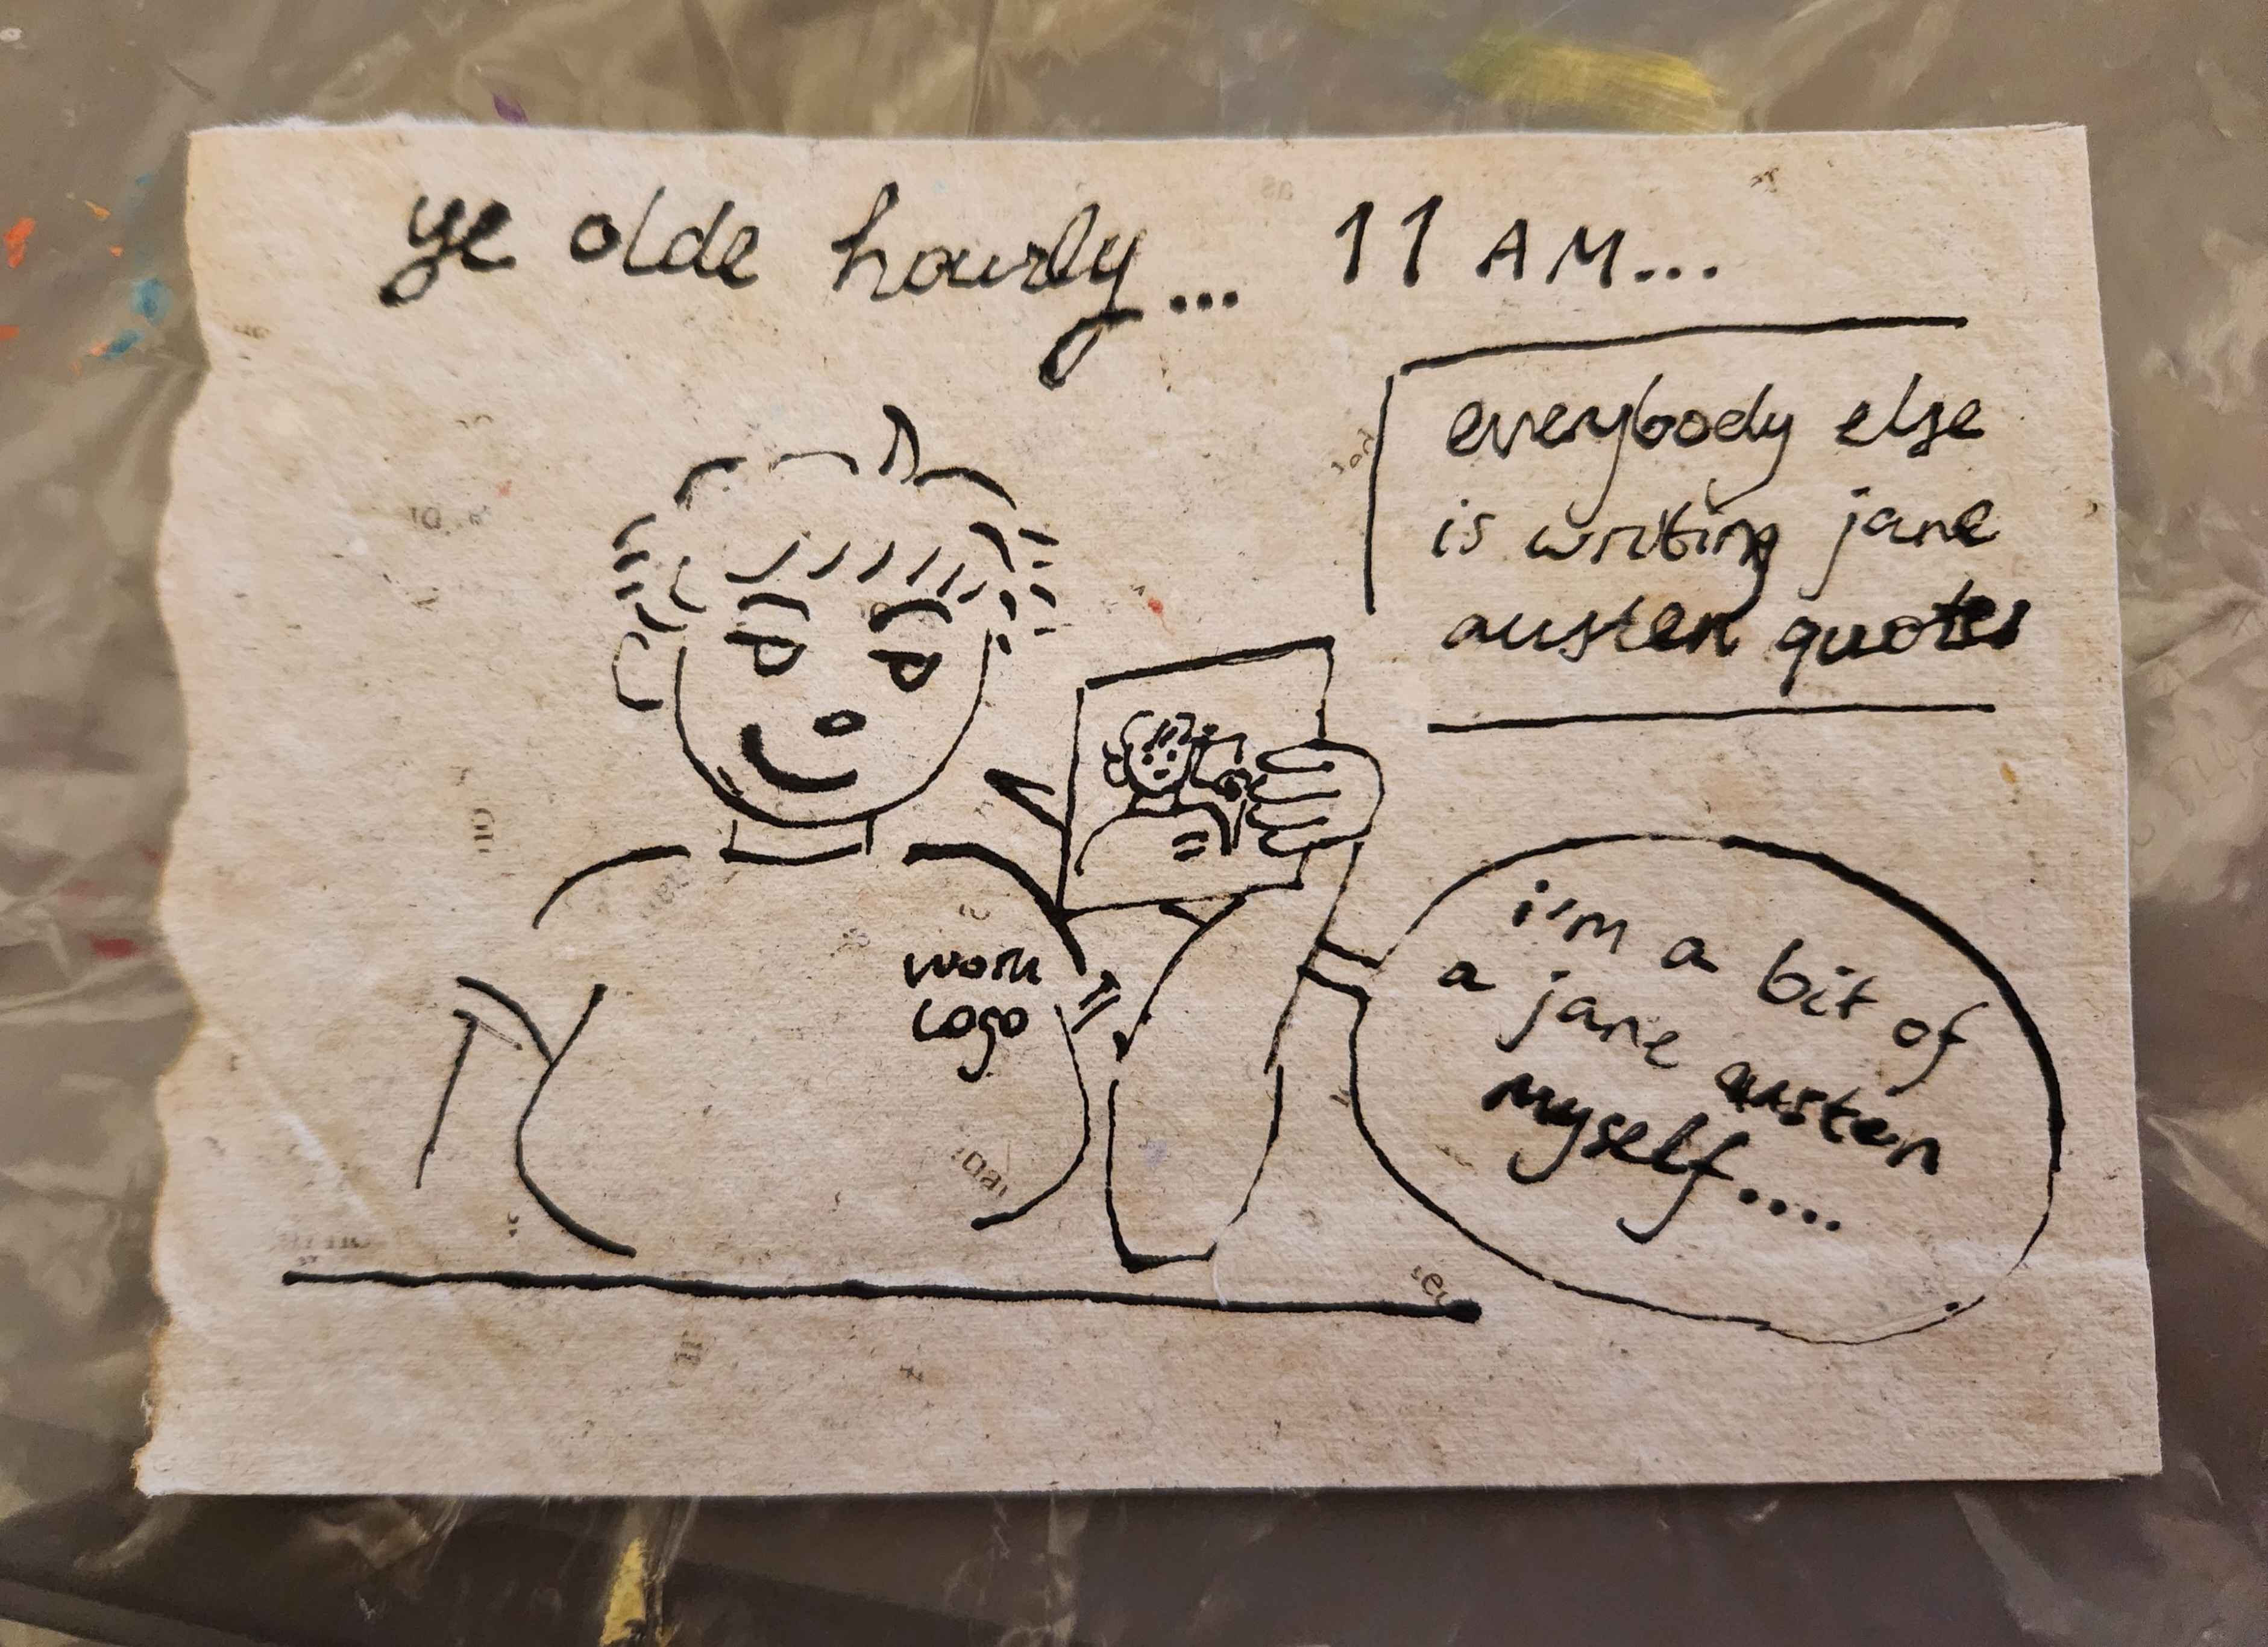 ye olde hourly... 11 AM...
everybody else
is writing jane
austen quotes
work
logo
i'm a bit of
a jane austen
myself....